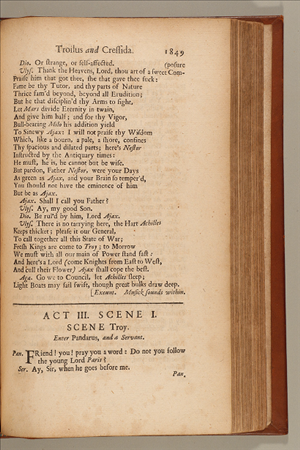 Troilus and Cressida. 1849
Dio. Or strange, or self-affected. (posure
Ulys. Thank the Heavens, Lord, thou art of a sweet Com-
Praise him that got thee, she that gave thee suck:
Fame be thy Tutor, and thy parts of Nature
Thrice fam'd beyond, beyond all Erudition;
But he that disciplin'd thy Arms to fight,
Let Mars divide Eternity in twain,
And give him half; and for thy Vigor,
Bull-bearing Milo his addition yield
To Sinewy Ajax: I will not praise thy Wisdom
Which, like a bourn, a pale, a shore, confines
Thy spacious and dilated parts; here's Nestor
Instructed by the Antiquary times:
He must, he is, he cannot but be wise.
But pardon, Father Nestor, were your Days
As green as Ajax, and your Brain so temper'd,
You should not have the eminence of him
But be as Ajax.
Ajax. Shall I call you Father?
Ulys. Ay, my good Son.
Dio. Be rul'd by him, Lord Ajax.
Ulys. There is no tarrying here, the Hart Achilles
Keeps thicket; please it our General,
To call together all this State of War;
Fresh Kings are come to Troy; to Morrow
We must with all our main of Power stand fast:
And here's a Lord, come Knights from East to West,
And cull their Flower, Ajax shall cope the best.
Aga. Go we to Council, let Achilles sleep;
Light Boats may sail swift, though great bulks draw deep.
[Exeunt. Musick sounds within.
ACT III. SCENE I.
SCENE Troy.
Enter Pandarus, and a Servant.
Pan. FRiend! you! pray you a word: Do not you follow
the young Lord Paris?
Ser. Ay, Sir, when he goes before me.
Pan.